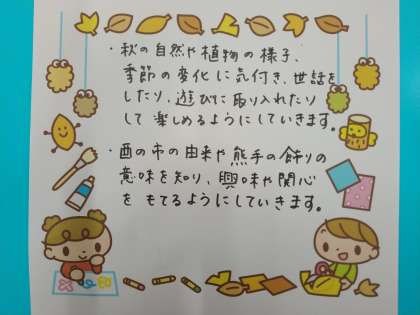 ・秋の自然や植物の様子、
季節の変化に気付き、世話を
したり、遊びに取り入れたり
して楽しめるようにしていきます。
・酉の市の由来や熊手の飾りの
意味を知り、興味や関心
をもてるようにしていきます。